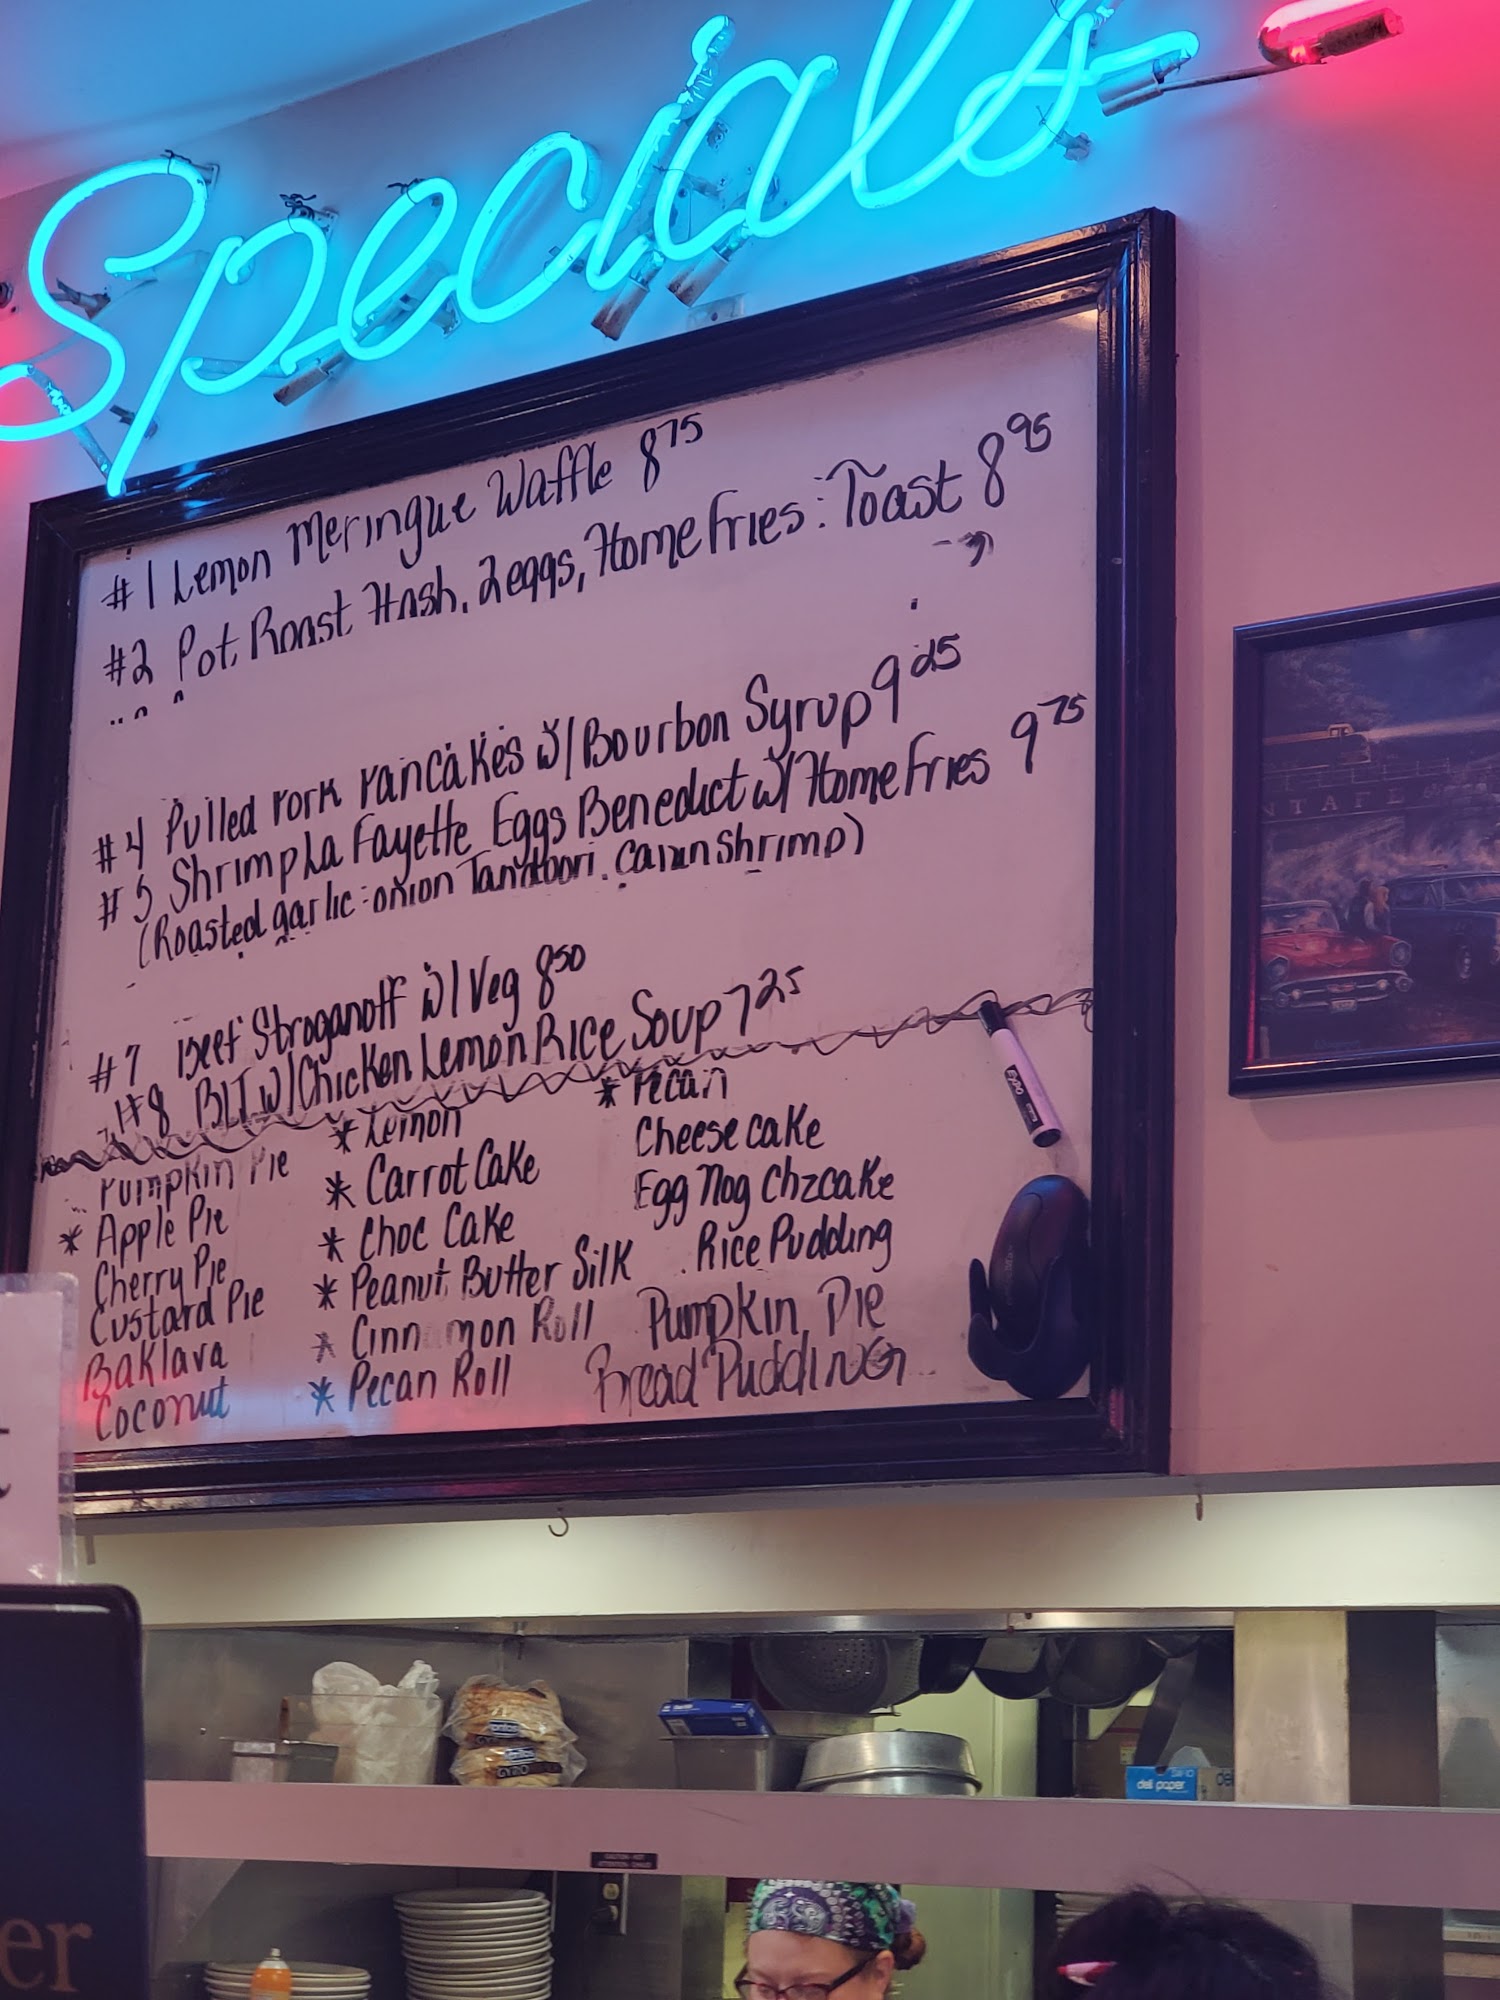 Specials
#1 Lemon Meringue Waffle 8 75
#2 Pot Roast Hash, 2 eggs, Home Fries : Toast 8 95
#4 Pulled Pork Pancakes w/ Bourbon Syrup 9 25
#5 Shrimp La Fayette Eggs Benedict w/ Home Fries 9 75
(Roasted garlic-onion Tandoori. Cajun Shrimp)
#7 Beef Stroganoff w/ Veg 8 50
#8 BLT w/ Chicken Lemon Rice Soup 7 25
Pumpkin Pie
* Apple Pie
Cherry Pie
Custard Pie
Baklava
Coconut
* Lemon
* Carrot Cake
* Choc Cake
* Peanut Butter Silk
* Cinnamon Roll
* Pecan Roll
* Pecan
Cheesecake
Egg Nog Chzcake
Rice Pudding
Pumpkin Pie
Bread Pudding
EXPO
deli paper
er